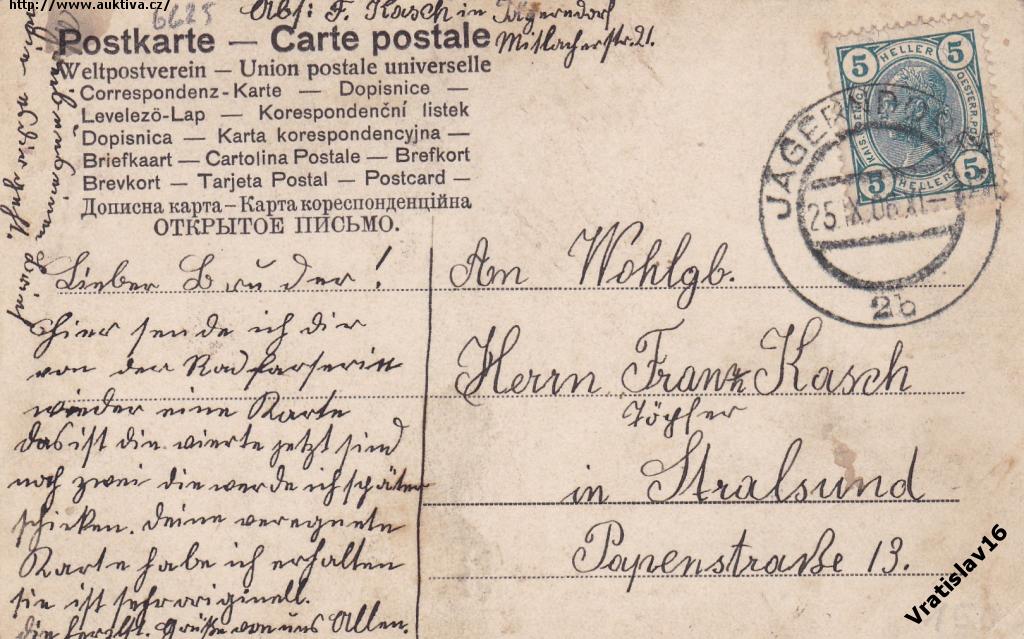 http://www.auktiva.cz/
6625
Abs: F. Kasch in Jägerndorf
Mitlacherstr. 21.
Postkarte — Carte postale
Weltpostverein — Union postale universelle
Correspondenz-Karte — Dopisnice —
Levelezö-Lap — Korespondenční listek
Dopisnica — Karta korespondencyjna —
Briefkaart — Cartolina Postale — Brefkort
Brevkort — Tarjeta Postal — Postcard —
Дописна карта — Карта кореспонденцiйна
ОТКРЫТОЕ ПИСЬМО.
5 HELLER 5
KAIS. KÖN. OESTERR. POST
5 HELLER 5
JÄGERNDORF
25.IX.06.XI—
2b
Lieber Bruder!
Hier sende ich dir
von der Radfarserin
wieder eine Karte
das ist die vierte jetzt sind
noch zwei die werde ich später
schicken. Deine veregnete
Karte habe ich erhalten
sie ist sehr originell.
die herzlst. Grüße von uns Allen.
An Wohlgb.
Herrn Franz Kasch
Töpfer
in Stralsund
Papenstraße 13.
Vratislav16